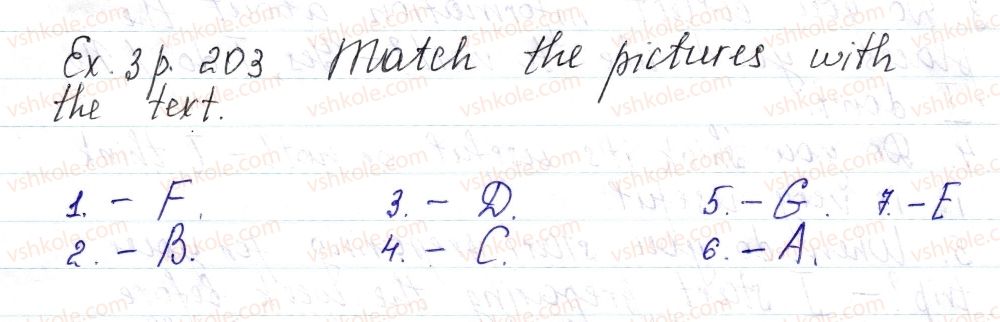 Ex. 3 p. 203 Match the pictures with
the text.
1. – F. 3. – D. 5. – G. 7. – E
2. – B. 4. – C. 6. – A.
vshkole.com